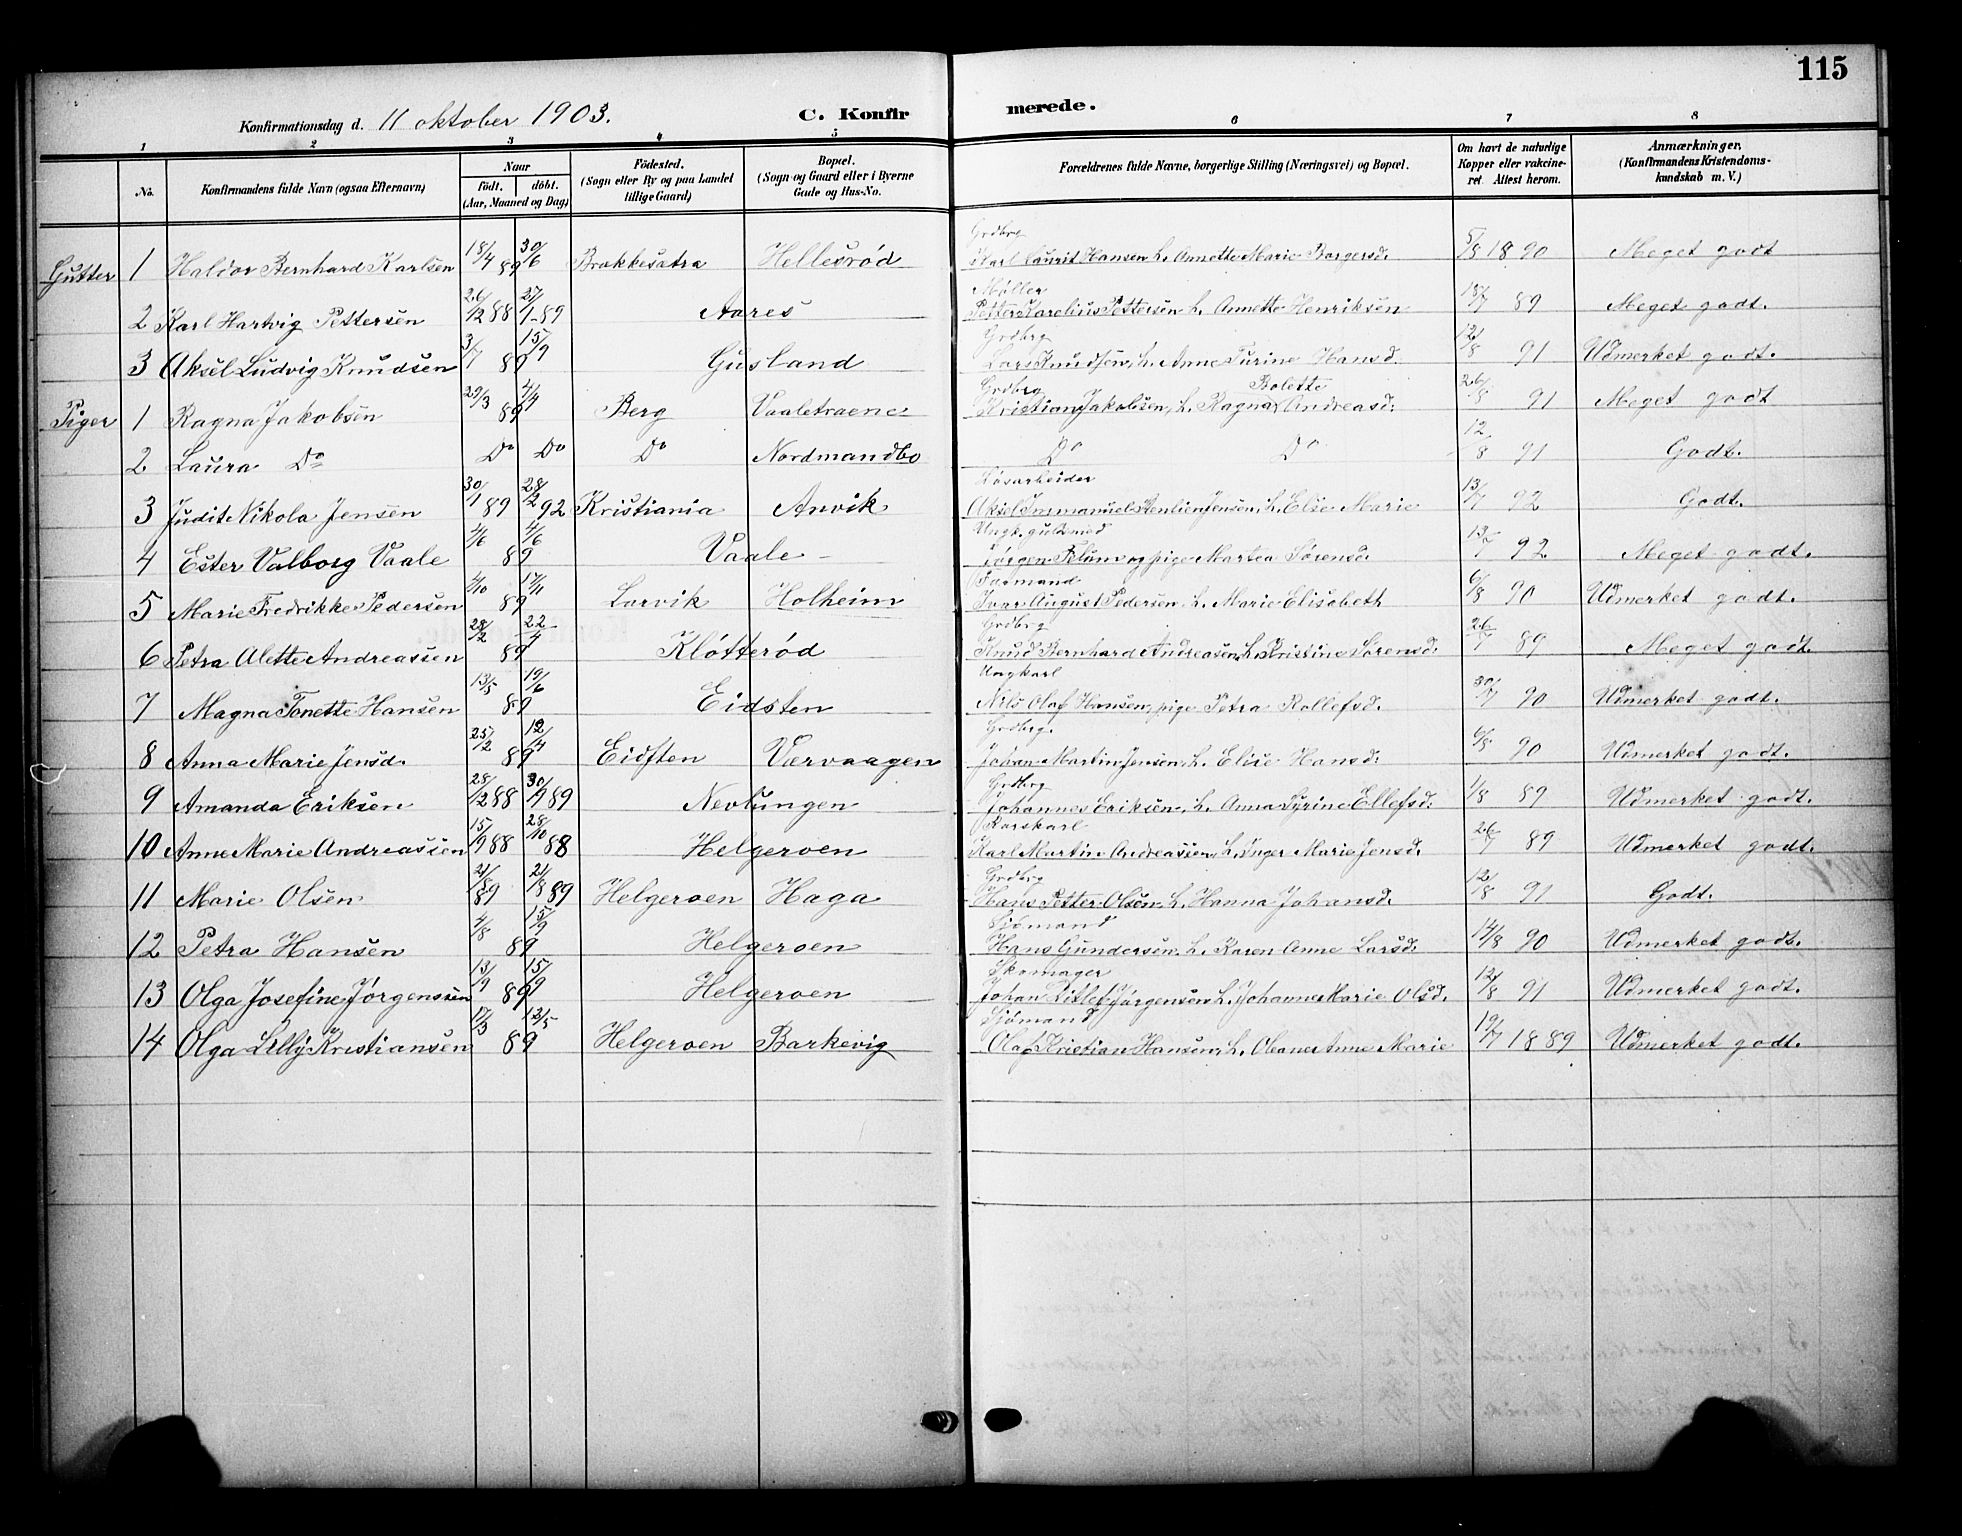 115
Konfirmationsdag d. 11 oktober 1903. C. Konfirmerede.
1 2 3 4 5 6 7 8
No. Konfirmandens fulde Navn (ogsaa Efternavn) Naar födt. döbt. (Aar, Maaned og Dag) Födested. (Sogn eller By og paa Landet tillige Gaard) Bopæl. (Sogn og Gaard eller i Byerne Gade og Hus-No. Forældrenes fulde Navne, borgerlige Stilling (Næringsvei) og Bopæl. Om havt de naturlige Kopper eller vakcineret. Attest herom. Anmærkninger. (Konfirmandens Kristendomskundskab m. V.)
Gutter 1 Haldor Bernhard Karlsen 18/4 89 30/6 Brokkesatra Hellesröd Grdbrg Karl Laurit Hansen h. Annette Marie Borgersd. 5/8 1890 Meget godt
2 Karl Hartvig Pettersen 26/12 88 27/1 89 Aares Møller Petter Karelius Pettersen h. Annette Henriksen 18/7 89 Meget godt.
3 Aksel Ludvig Knudsen 3/7 89 15/9 Gusland Grdbrg Lars Knudsen, h. Anne Turine Hansd. 12/8 91 Udmerket godt.
Piger 1 Ragna Jakobsen 29/3 89 4/4 Berg Vaaletraene Grdbrg Kristian Jakobsen, h. Ragna Bolette Andreasd. 26/8 91 Meget godt
2 Laura Do Do Do Do Nordmandbo Do Do 12/8 91 Godt.
3 Judit Nikola Jensen 30/1 89 28/2 92 Kristiania Anvik Løsarbeider Aksel Immanuel Stenlien Jensen, h. Elise Marie 13/7 92 Godt.
4 Ester Valborg Vaale 4/6 89 4/6 Vaale Ungk. guldsmed Jørgen og pige Martea Sørensd. 13/7 92 Meget godt.
5 Marie Fredrikke Pedersen 4/10 89 17/11 Larvik Holheim Ivar August Pedersen, h. Marie Elisabeth 6/8 90 Udmerket godt.
6 Petra Alette Andreassen 28/2 89 22/4 Kløtterød Grdbrg Knud Bernhard Andreasen, h. Kristine Sørensd. 26/7 89 Meget godt.
7 Magna Tonette Hansen 13/5 89 19/6 Eidsten Ungkarl Nils Olaf Hansen, pige Petra Rollefsd. 30/7 90 Udmerket godt.
8 Anna Marie Jensd. 25/12 89 12/4 Eidsten Værvaagen Grdbrg. Johan Martin Jensen, h. Elise Hansd. 6/8 90 Udmerket godt.
9 Amanda Eriksen 28/12 88 30/1 89 Nevlungen Grdbrg Johannes Eriksen, h. Anna Syrine Ellefsd. 1/8 89 Udmerket godt.
10 Anne Marie Andreassen 15/9 88 28/10 88 Helgeroen Karl Martin Andreassen, h. Inger Marie Jensd. 26/7 89 Udmerket godt.
11 Marie Olsen 21/8 89 21/8 89 Helgeroen Haga Grdbrg Hans Petter Olsen, h. Hanna Johansd. 12/8 91 Godt.
12 Petra Hansen 4/8 89 15/9 Helgeroen Sjömand Hans Gundersen, h. Karen Anne Larsd. 14/8 90 Udmerket godt.
13 Olga Josefine Jørgenssen 13/9 89 15/9 Helgeroen Skomager Johan Ditlef Jørgensen, h. Johanne Marie Olsd. 12/8 91 Udmerket godt.
14 Olga Lilly Kristiansen 17/3 89 12/5 Helgeroen Barkevig Sjömand Olaf Kristian Hansen, h. Oleane Anne Marie 19/7 1889 Udmerket godt.